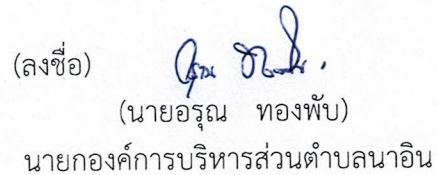 (ลงชื่อ)
(นายอรุณ ทองพับ)
นายกองค์การบริหารส่วนตำบลนาอิน